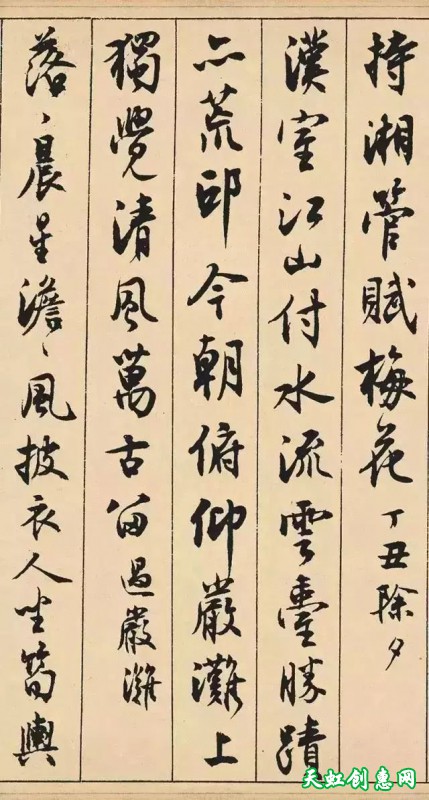 持湘管賦梅花丁丑除夕
漢室江山付水流雲臺勝蹟
亦荒邱今朝俯仰嚴灘上
獨覺清風萬古留過嚴灘
落〻晨星澹〻風披衣人坐筍輿
天虹创惠网